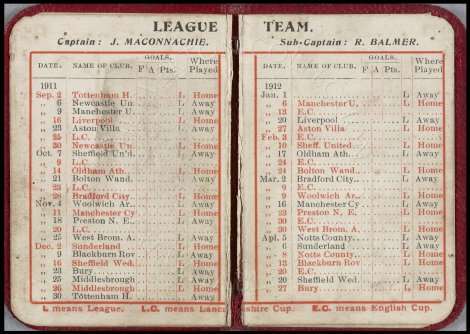 LEAGUE TEAM.
Captain: J. MACONNACHIE. Sub-Captain: R. BALMER.
DATE. NAME OF CLUB. GOALS. F A Pts. Where Played
1911
Sep. 2 Tottenham H. L Home
„ 6 Newcastle Un. L Away
„ 9 Manchester U. L Away
„ 16 Liverpool L Home
„ 23 Aston Villa L Away
„ 25 L.C.
„ 30 Newcastle Un. L Home
Oct. 7 Sheffield Un'd. L Away
„ 9 L.C.
„ 14 Oldham Ath. L Home
„ 21 Bolton Wand. L Away
„ 23 L.C.
„ 28 Bradford City L Home
Nov. 4 Woolwich Ar. L Away
„ 11 Manchester Cy L Home
„ 18 Preston N. E. L Away
„ 20 L.C.
„ 25 West Brom. A. L Away
Dec. 2 Sunderland L Home
„ 9 Blackburn Rov L Away
„ 16 Sheffield Wed. L Home
„ 23 Bury L Away
„ 25 Middlesbrough L Away
„ 26 Middlesbrough L Home
„ 30 Tottenham H. L Away
L means League. L.C. means Lancashire Cup. E.C. means English Cup.
DATE. NAME OF CLUB. GOALS. F A Pts. Where Played
1912
Jan. 1 L Away
„ 6 Manchester U. L Home
„ 13 E.C.
„ 20 Liverpool L Away
„ 27 Aston Villa L Home
Feb. 3 E.C.
„ 10 Sheff. United L Home
„ 17 Oldham Ath. L Away
„ 24 E.C.
„ 24 Bolton Wand. L Home
Mar. 2 Bradford City L Away
„ 9 E.C.
„ 9 Woolwich Ar. L Home
„ 16 Manchester Cy L Away
„ 23 Preston N. E. L Home
„ 30 E.C.
„ 30 West Brom. A. L Home
Apl. 5 Notts County L Away
„ 6 Sunderland L Away
„ 8 Notts County L Home
„ 13 Blackburn Rov L Home
„ 20 E.C.
„ 20 Sheffield Wed. L Away
„ 27 Bury L Home